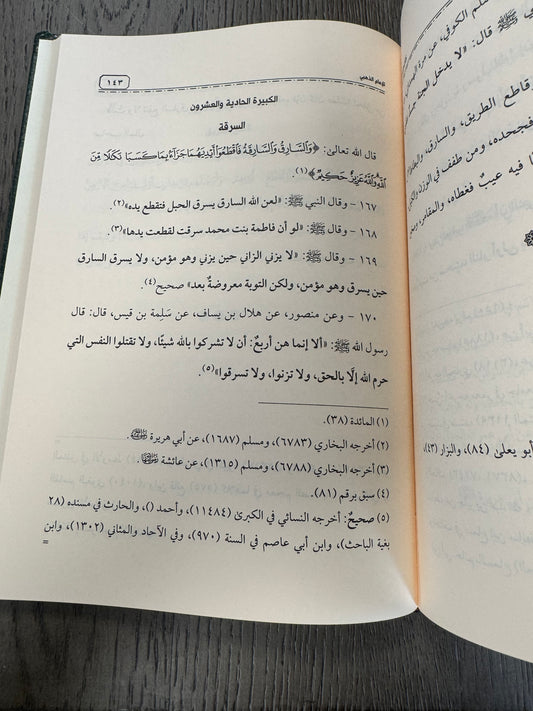 للإمام الذهبي
١٤٣
الكبيرة الحادية والعشرون
السرقة
قال الله تعالىٰ: ﴿وَٱلسَّارِقُ وَٱلسَّارِقَةُ فَٱقْطَعُوٓا۟ أَيْدِيَهُمَا جَزَآءًۢ بِمَا كَسَبَا نَكَٰلًا مِّنَ
ٱللَّهِ وَٱللَّهُ عَزِيزٌ حَكِيمٌ﴾(١).
١٦٧ - وقال النبي ﷺ: «لعن الله السارق يسرق الحبل فتقطع يده»(٢).
١٦٨ - وقال ﷺ: «لو أن فاطمة بنت محمد سرقت لقطعت يدها»(٣).
١٦٩ - وقال ﷺ: «لا يزني الزاني حين يزني وهو مؤمن، ولا يسرق السارق
حين يسرق وهو مؤمن، ولكن التوبة معروضةٌ بعد» صحيح(٤).
١٧٠ - وعن منصور، عن هلال بن يساف، عن سَلِمة بن قيس، قال: قال
رسول الله ﷺ: «ألا إنما هن أربعٌ: أن لا تشركوا بالله شيئًا، ولا تقتلوا النفس التي
حرم الله إلَّا بالحق، ولا تزنوا، ولا تسرقوا»(٥).
(١) المائدة (٣٨).
(٢) أخرجه البخاري (٦٧٨٣)، ومسلم (١٦٨٧)، عن أبي هريرة رضي الله عنه.
(٣) أخرجه البخاري (٦٧٨٨)، ومسلم (١٣١٥)، عن عائشة رضي الله عنها.
(٤) سبق برقم (٨١).
(٥) صحيحٌ: أخرجه النسائي في الكبرىٰ (١١٤٨٤)، وأحمد ()، والحارث في مسنده (٢٨
بغية الباحث)، وابن أبي عاصم في السنة (٩٧٠)، وفي الآحاد والمثاني (١٣٠٢)، وابن
=
مسلم الكوفي، عن مرة
ﷺ قال: «لا يدخل الجنة
وقاطع الطريق، والسارق،
فجحده، ومن طفف في الوزن
فيه عيبٌ فغطاه، والمقامر،
أبو يعلىٰ (٨٤)، والبزار (٤٣)،